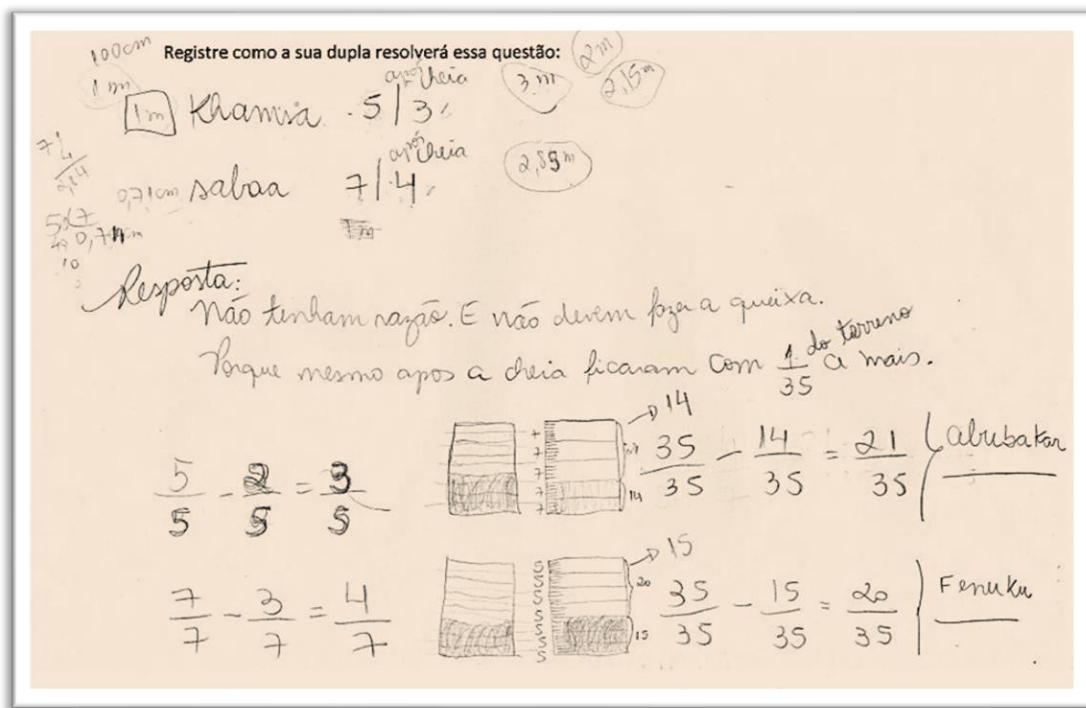 Registre como a sua dupla resolverá essa questão:
100cm
1m
1m Khamsa 5/3 após cheia 3m 2m 2,15m
sabaa 7/4 após cheia
0,71cm
Resposta:
Não tenham razão. E não devem fazer a queixa.
Porque mesmo apos a cheia ficaram com 1/35 do terreno a mais.
5/5 - 2/5 = 3/5
7 7 7 7 7 21 14
14
35/35 - 14/35 = 21/35 abubakar
7/7 - 3/7 = 4/7
5 5 5 5 5 5 5 20 15
15
35/35 - 15/35 = 20/35 Fenuku